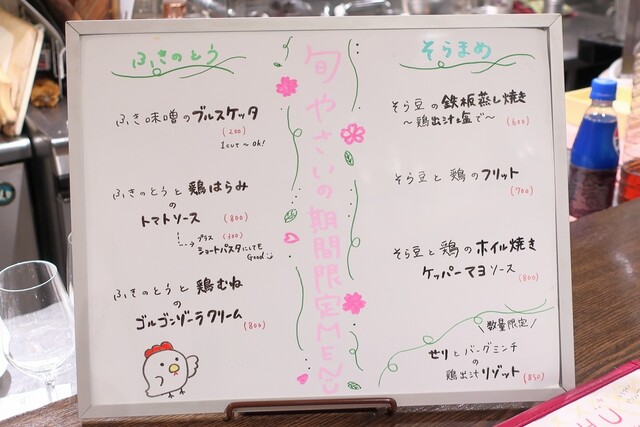 ふきのとう
ふき味噌のブルスケッタ
(200)
1cutで〜OK!
ふきのとうと鶏はらみ
の
トマトソース (800)
プラス (300)
ショートパスタにしても
Good
ふきのとうと鶏むね
の
ゴルゴンゾーラクリーム (800)
旬やさいの期間限定MENU
そらまめ
そら豆の鉄板蒸し焼き
〜鶏出汁と塩で〜 (600)
そら豆と鶏のフリット
(700)
そら豆と鶏のホイル焼き
ケッパーマヨソース (800)
\数量限定/
せりとハーブミンチ
の
鶏出汁リゾット (850)